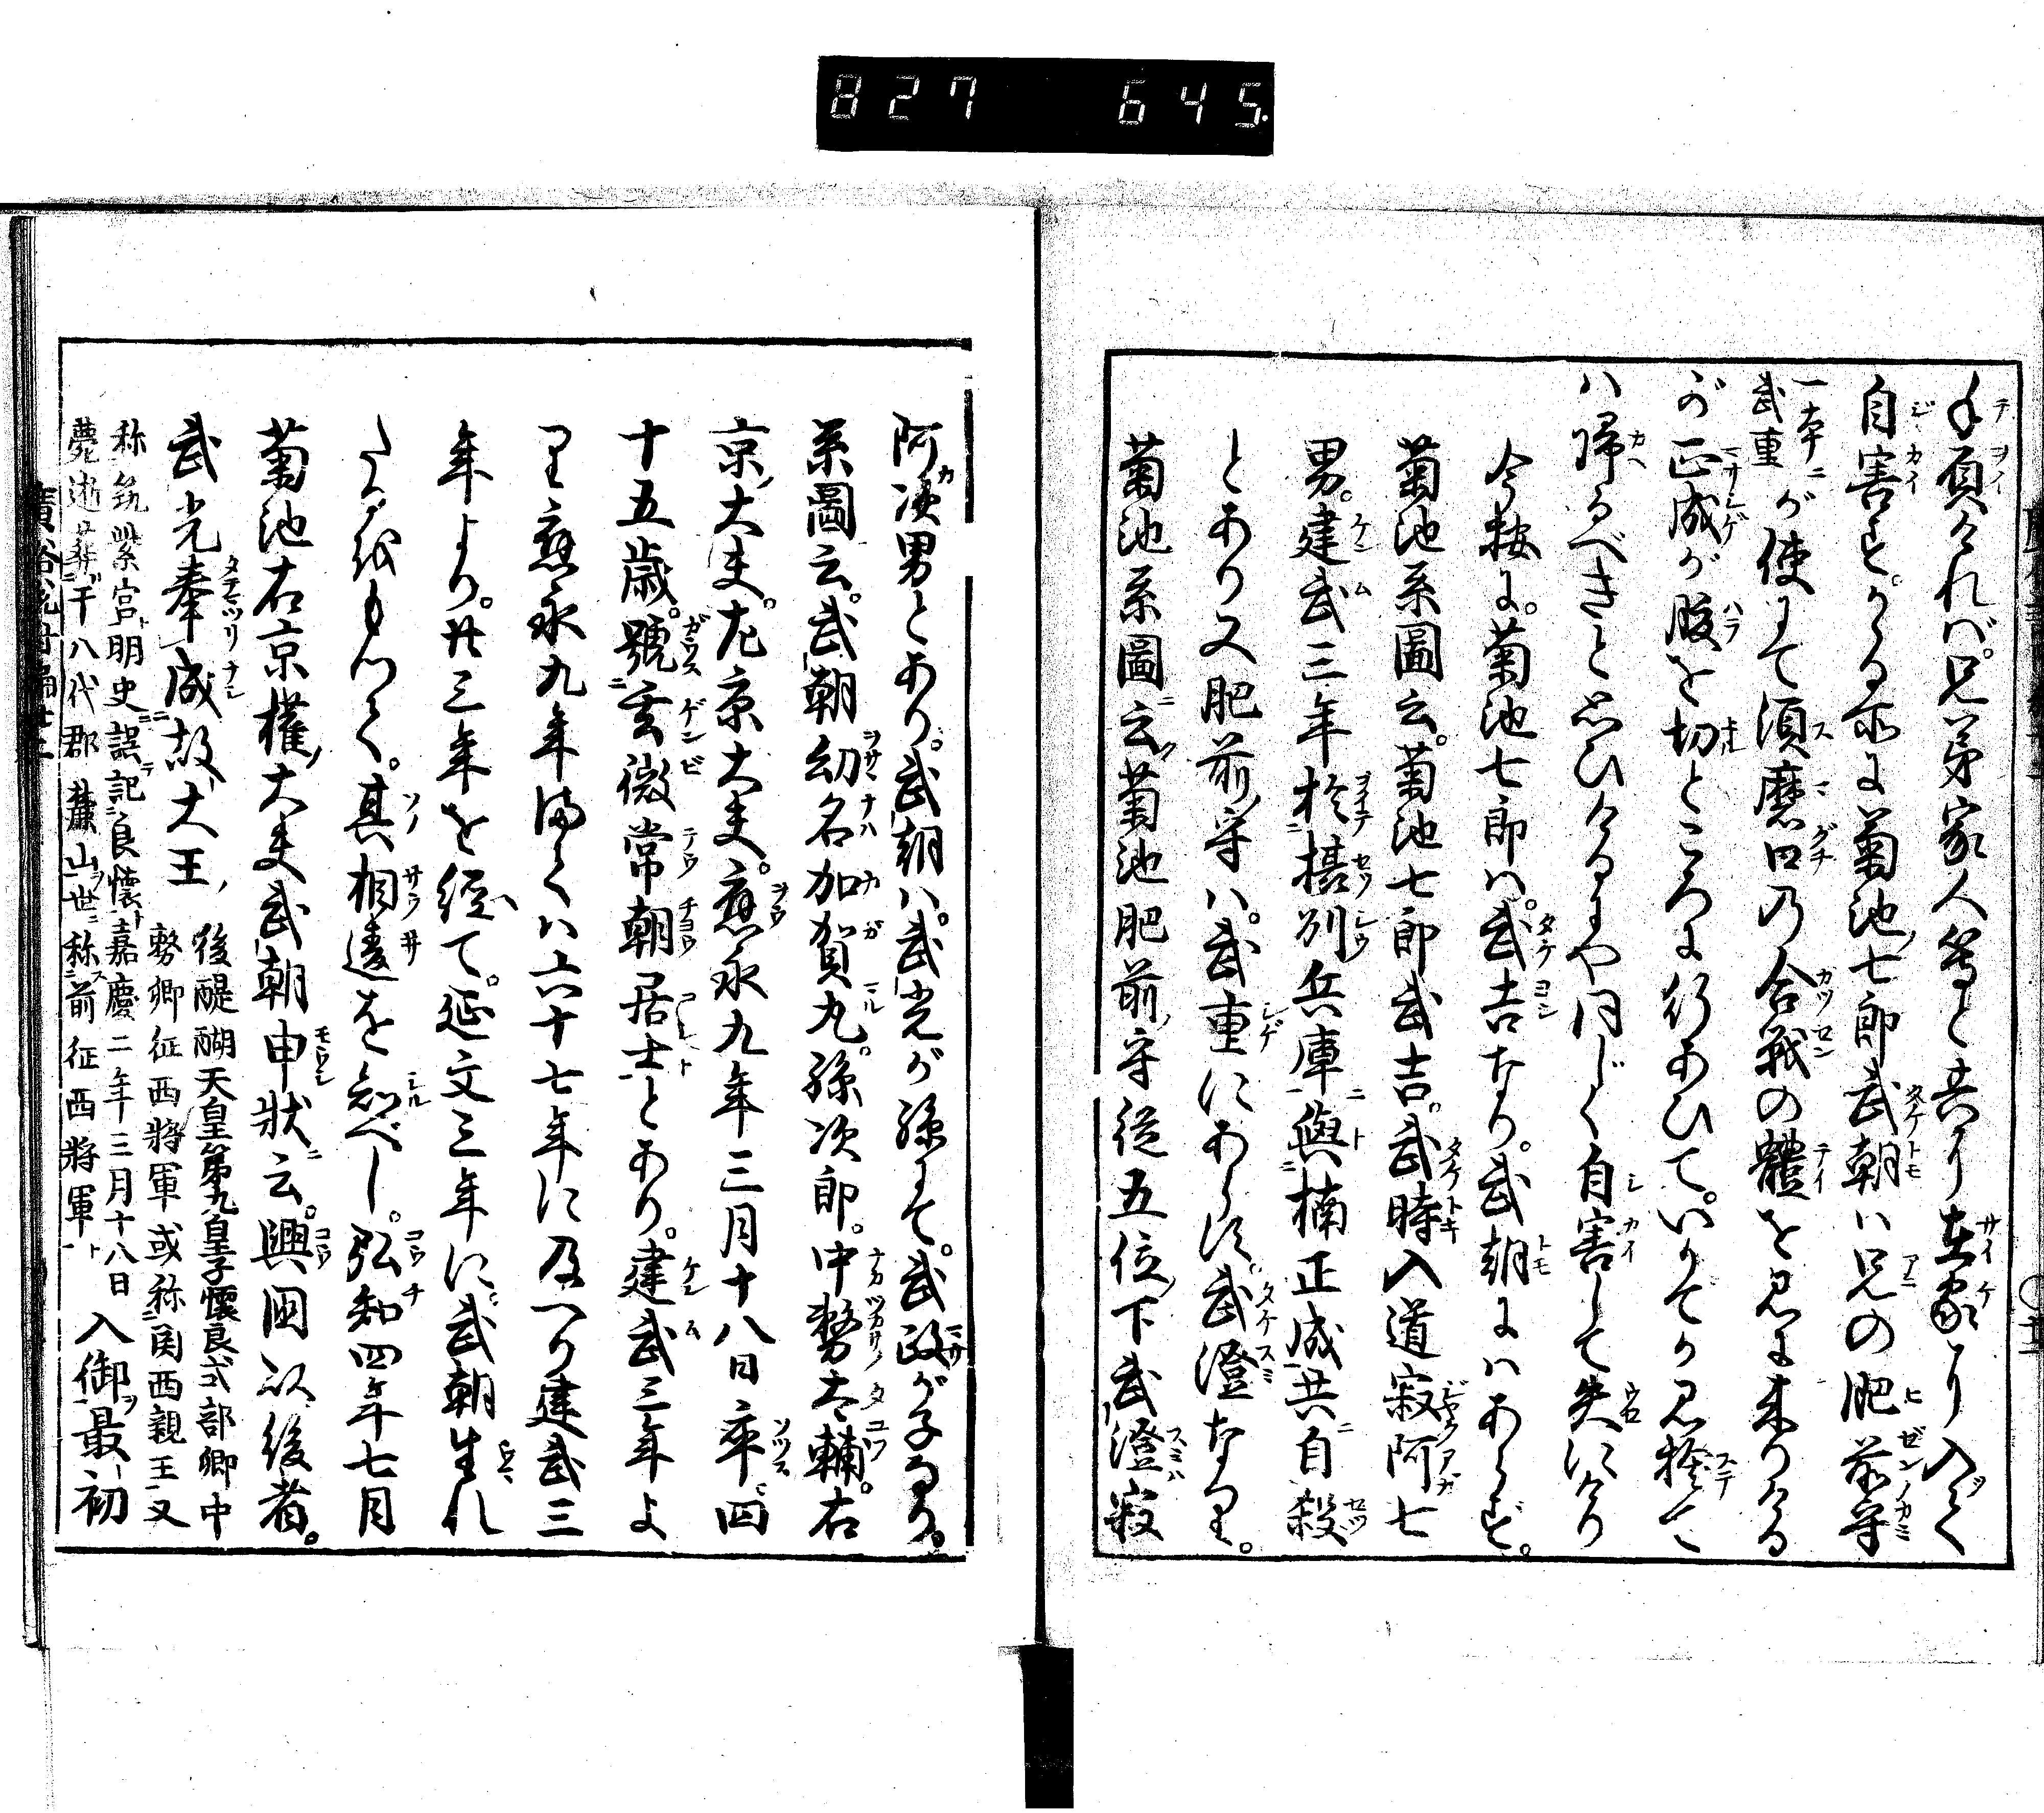 827 645
手負ケれバ。兄弟家人等と共ニ在家ニ入ビて
自害ス。かゝる所に菊池七郎武朝ハ兄の肥前守
一本ニ武重が使にて須磨口乃合戦の體を見に来りける
が正成が腹を切ところに行あひて。いかでか見捨て
ハ帰るべきと思ひけるにや同じく自害して失にけり
今按に。菊池七郎ハ。武吉なり。武朝にハあらず。
菊池系圖云。菊池七郎武吉。武時入道寂阿七
男。建武三年於攝州兵庫與楠正成共自殺
とあり又肥前守ハ。武重にあらず。武澄なり。
菊池系圖云菊池肥前守従五位下武澄寂
阿次男とあり。武朝ハ。武光が孫にて。武政が子なり。
系圖云。武朝幼名加賀丸。孫次郎。中務太輔。右
京大夫。左京大夫。應永九年三月十八日卒。四
十五歳。號玄微常朝居士とあり。建武三年よ
り應永九年までハ六十七年に及べり建武三
年より。廿三年を經て。延文三年に。武朝生れ
たるをもつて。其相違を知べし。弘和四年七月
菊池右京權大夫武朝申狀云。興国以後者。
武光奉成故大王
後醍醐天皇第九皇子懐良式部卿中
務卿征西將軍或称関西親王又
称筑紫宮明史誤記良懐嘉慶二年三月十八日
薨逝葬于八代郡麓山世称前征西將軍
入御最初